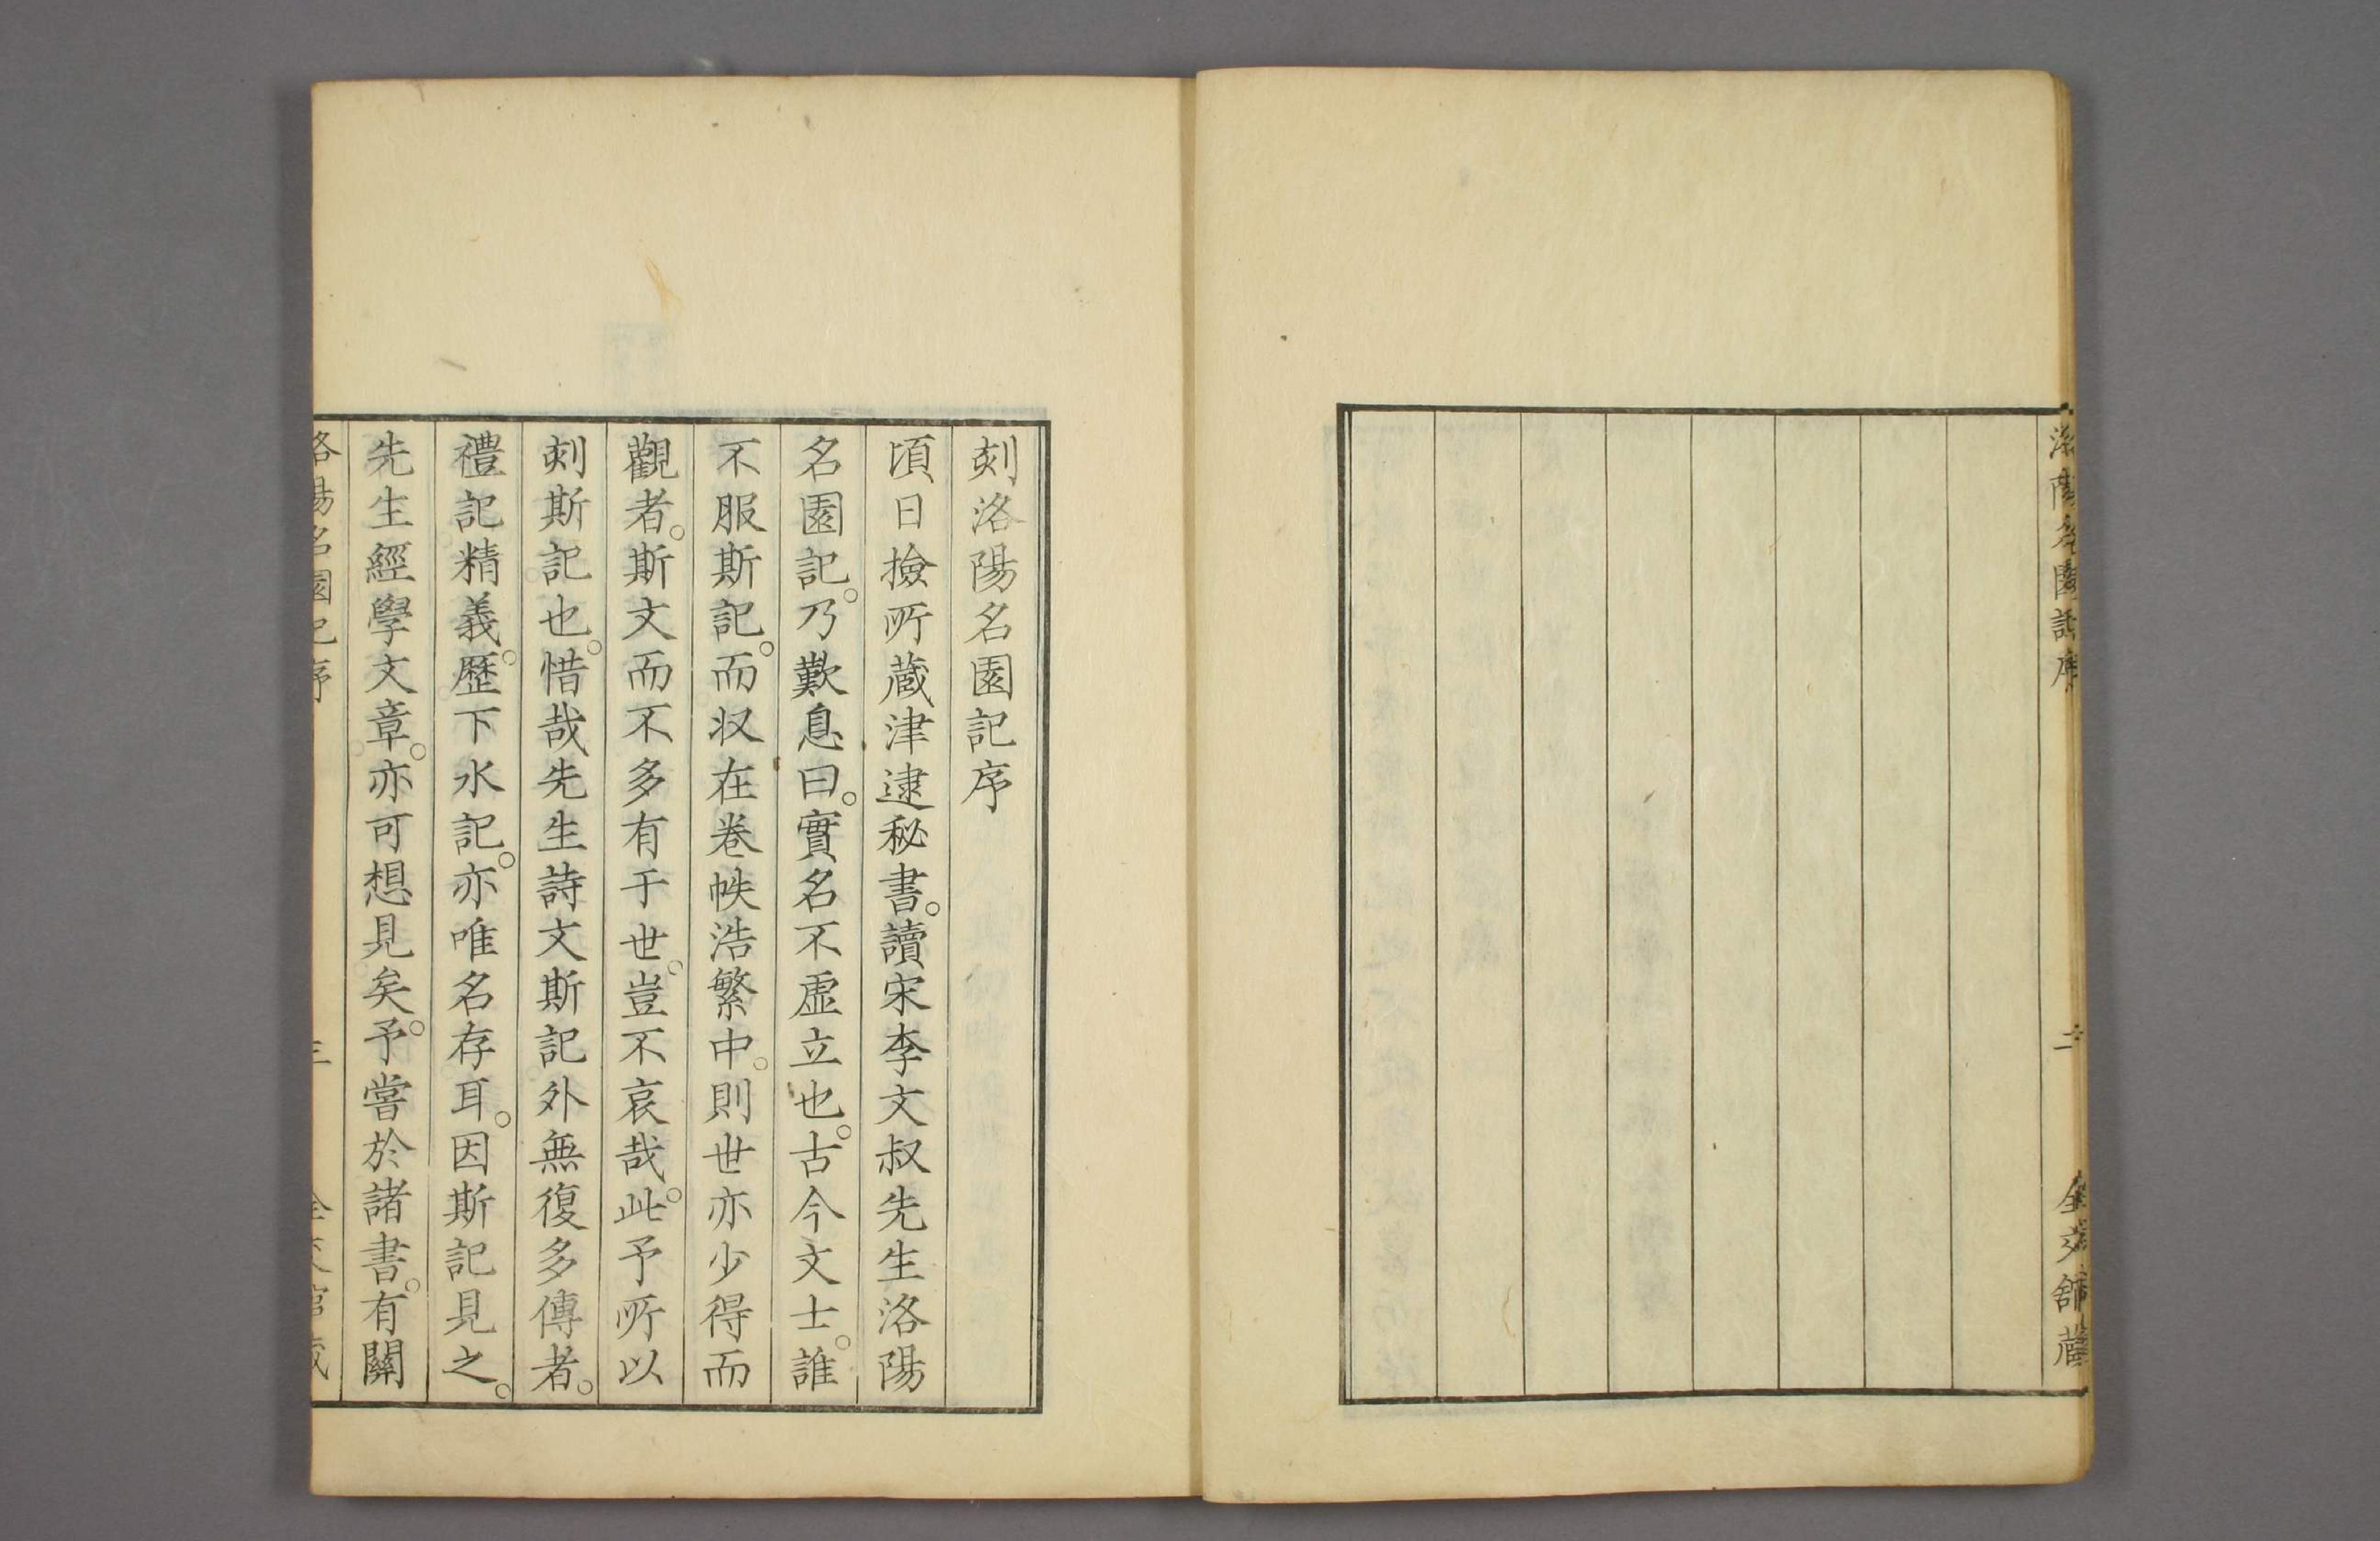 洛陽名園記序 二 全交館藏
刻洛陽名園記序
頃日撿所蔵津逮秘書。讀宋李文叔先生洛陽
名園記。乃歎息曰。實名不虛立也。古今文士。誰
不服斯記。而収在卷帙浩繁中。則世亦少得而
觀者。斯文而不多有于世。豈不哀哉。此予所以
刻斯記也。惜哉先生詩文斯記外無復多傳者。
禮記精義。歷下水記。亦唯名存耳。因斯記見之。
先生經學文章。亦可想見矣。予嘗於諸書。有關
洛陽名園記序 三 全交館藏